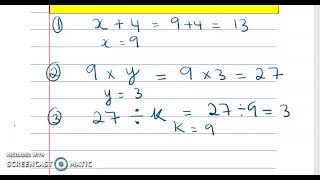 ① x + 4 = 9 + 4 = 13
x = 9
② 9 × y = 9 × 3 = 27
y = 3
③ 27 ÷ k = 27 ÷ 9 = 3
k = 9
RECORDED WITH
SCREENCAST MATIC